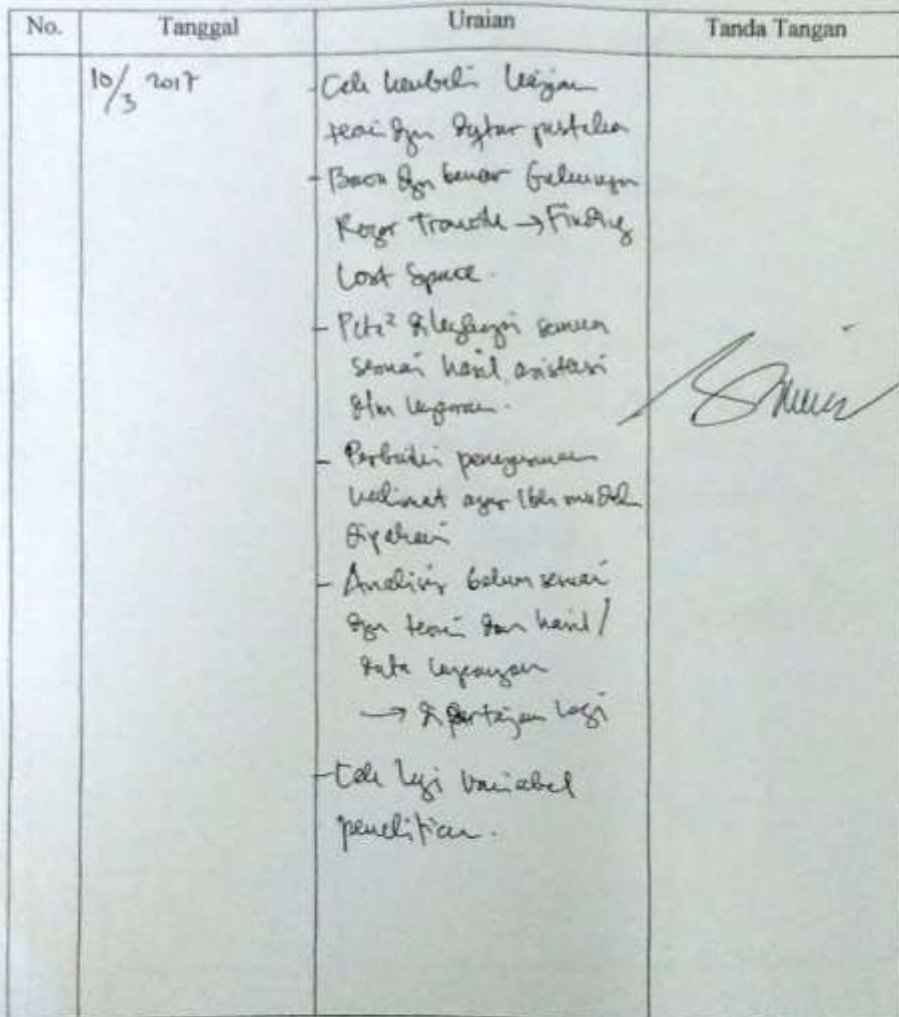 No. Tanggal Uraian Tanda Tangan
10/3 2017 - Cek kembali kajian
teori dgn daftar pustaka
- Baca dgn benar
Roger Trancik → Finding
Lost Space.
- Peta² dilengkapi semua
sesuai hasil asistensi
dan laporan.
- Perbaiki penggunaan
kalimat agar lbh mudah
dipahami
- Analisis belum sesuai
dgn teori dan hasil/
data lapangan
→ dipertajam lagi
- Cek lagi variabel
penelitian.